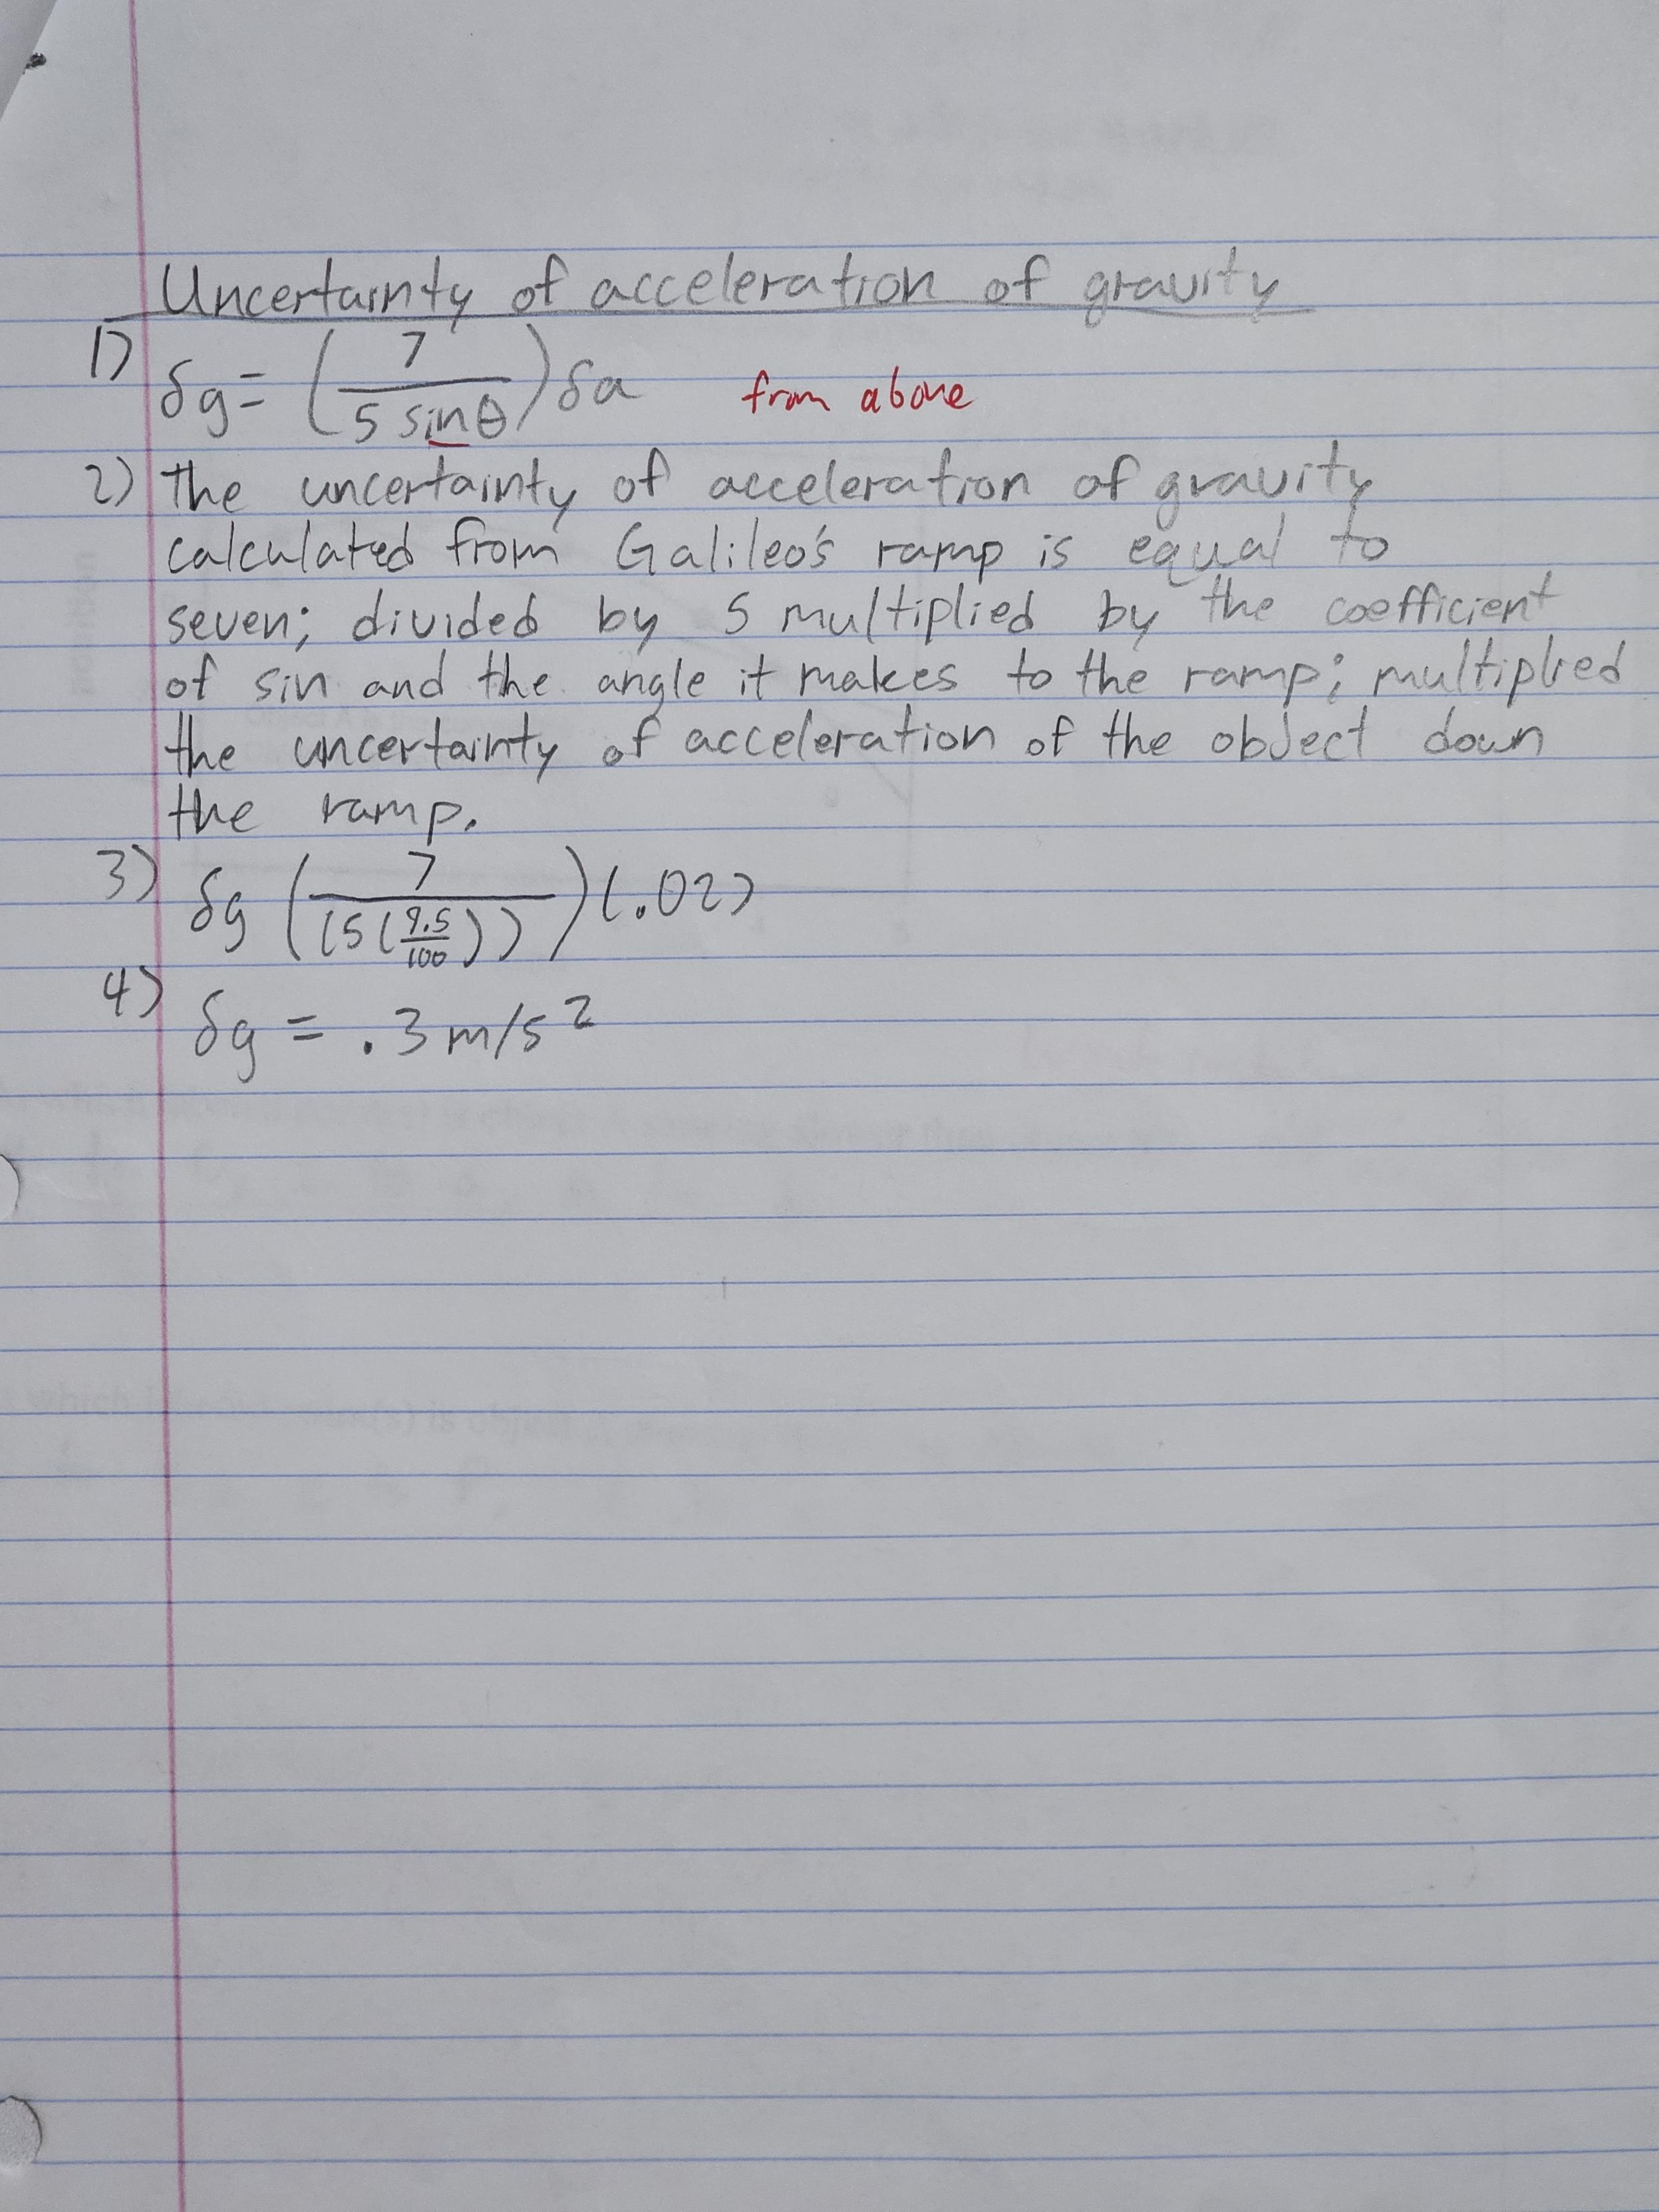 Uncertainty of acceleration of gravity
1) δg = (7 / 5 sinθ) δa from above
2) The uncertainty of acceleration of gravity
calculated from Galileo's ramp is equal to
seven; divided by 5 multiplied by the coefficient
of sin and the angle it makes to the ramp; multiplied
the uncertainty of acceleration of the object down
the ramp.
3) δg (7 / (5(9.5/100))) (.02)
4) δg = .3 m/s²